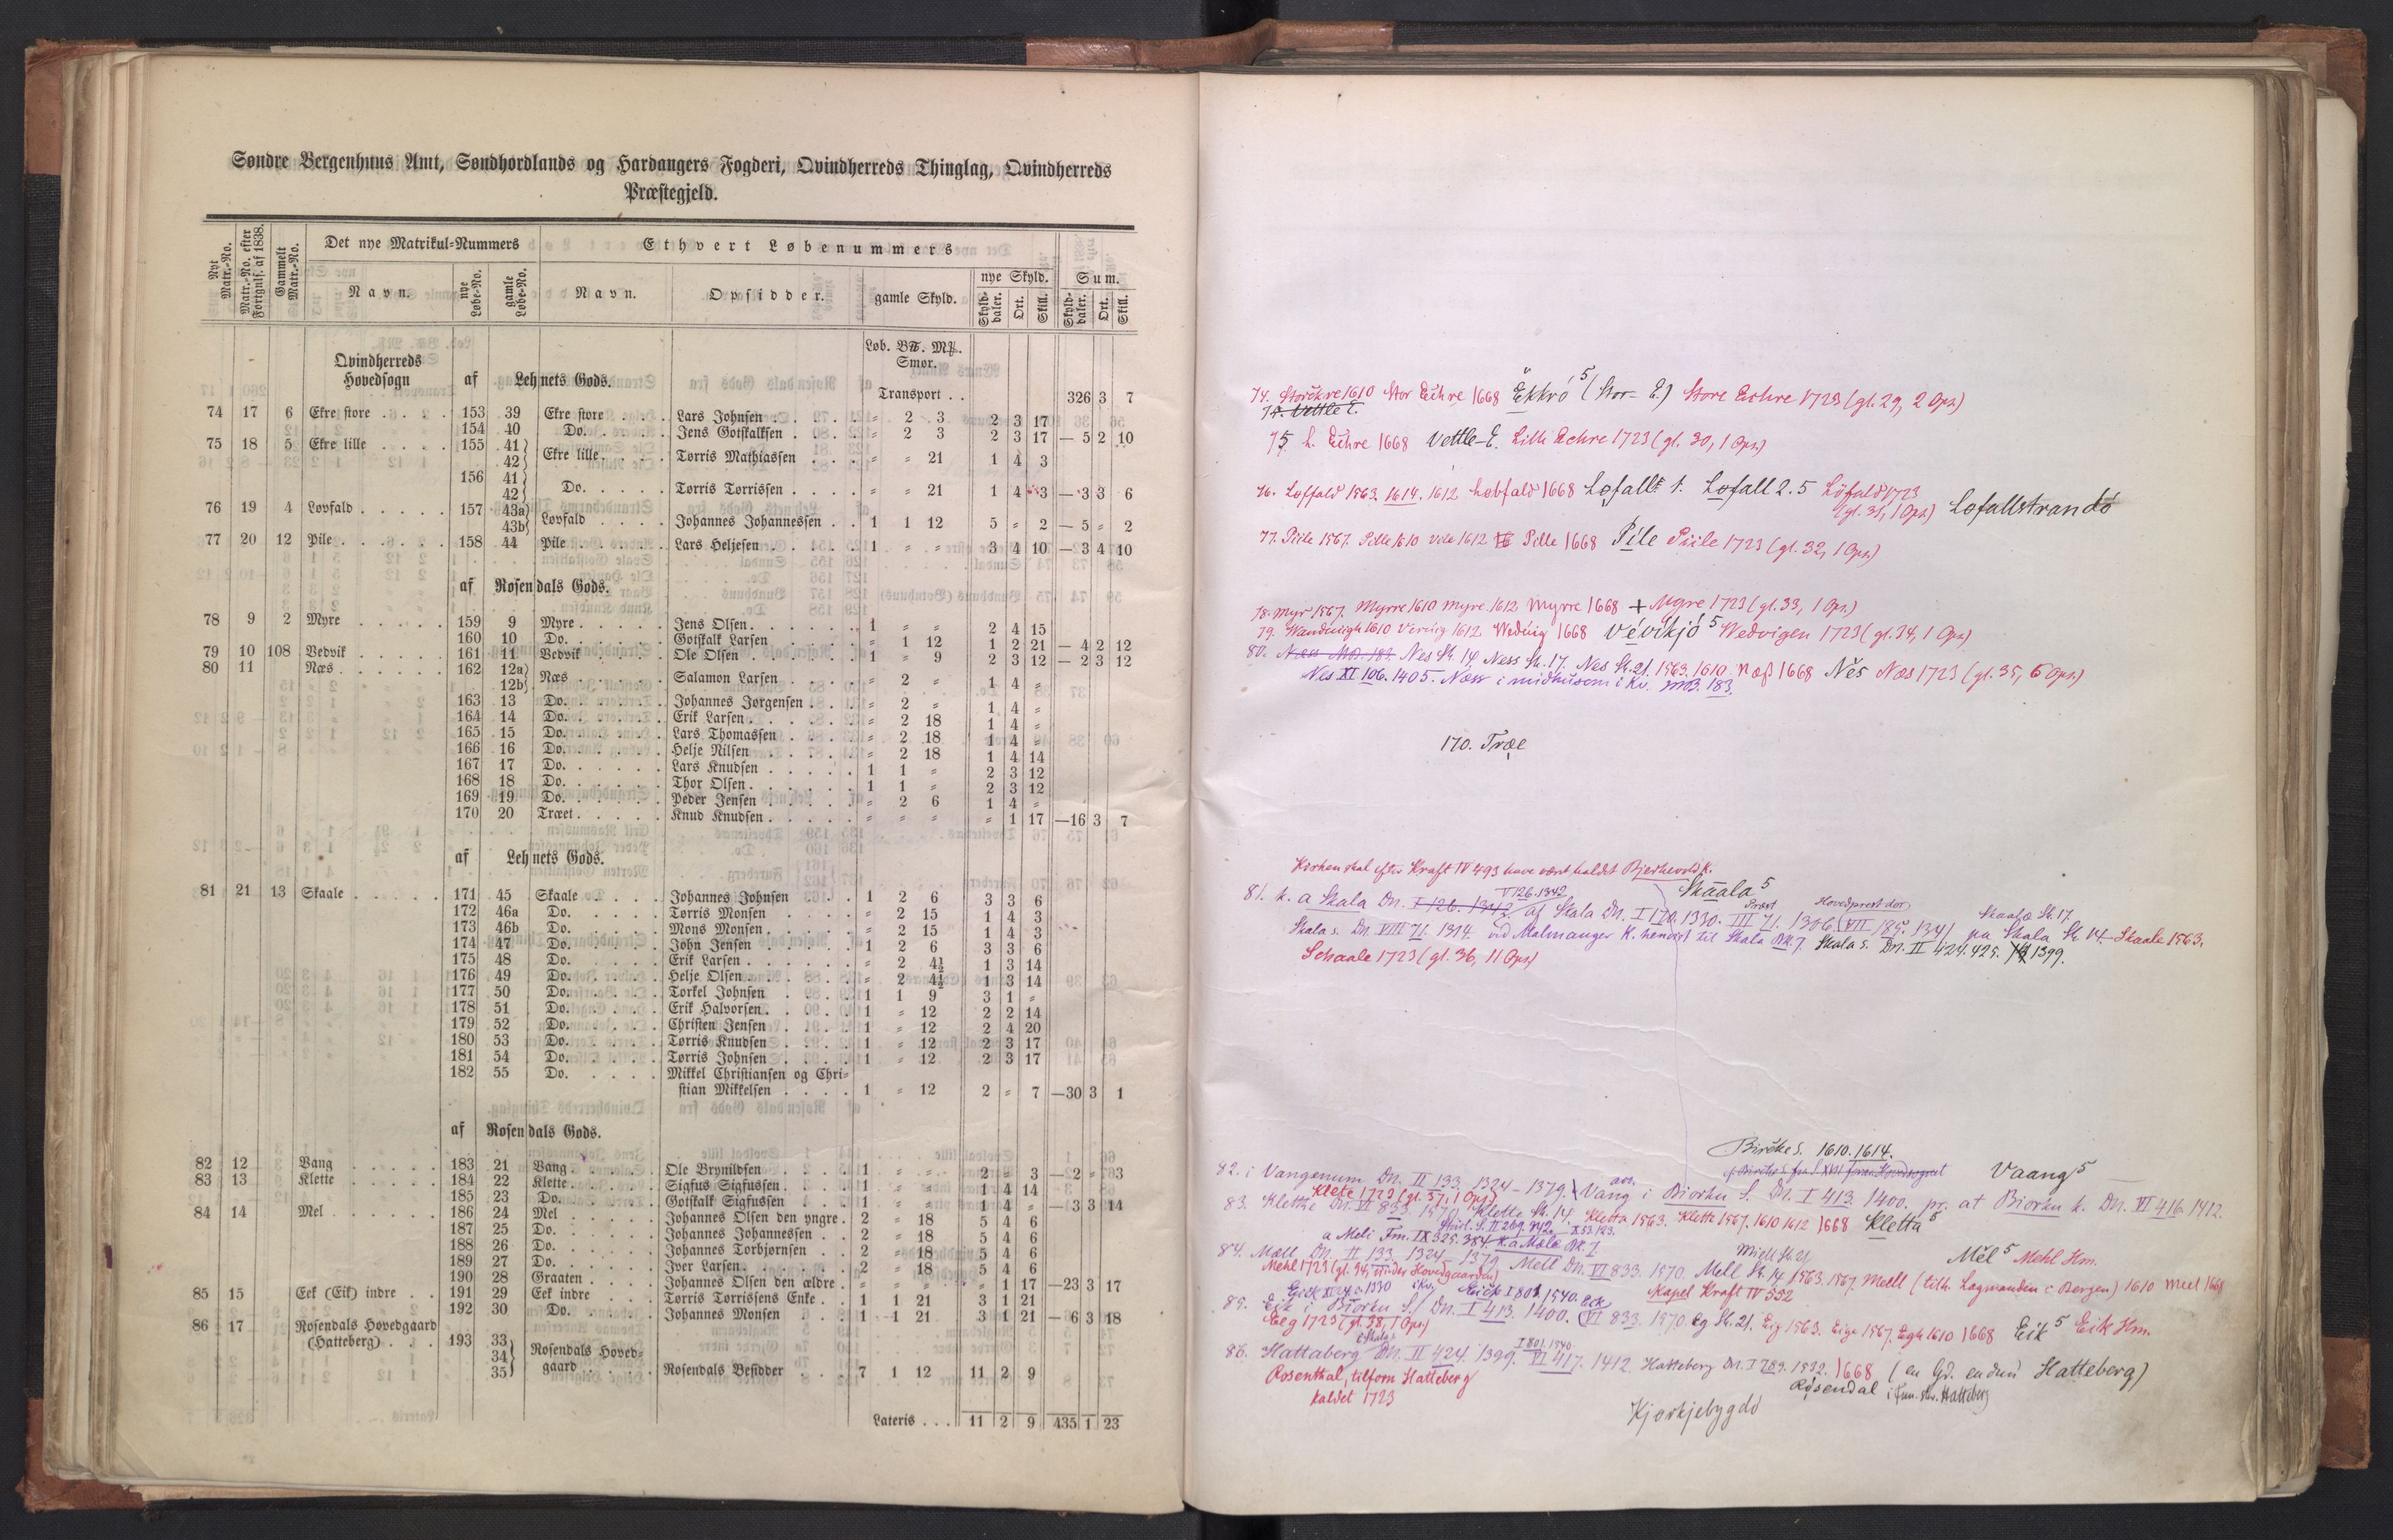 Søndre Bergenhuus Amt, Søndhordlands og Hardangers Fogderi, Qvindherreds Thinglag, Qvindherreds
Præstegjeld.
Nyt Matr.-No. Matr.-No. efter Forignlf. af 1838. Gammelt Matr.-No. Det nye Matrikul-Nummers Ethvert Løbenummers
Navn. nye Løbe-No. gamle Løbe-No. Navn. Opsidder. gamle Skyld. nye Skyld. Sum.
Skyld-daler. Ort. Skill. Skyld-daler. Ort. Skill.
Qvindherreds Løb. B℔. M℔.
Hovedsogn af Lehnets Gods. Smør.
Transport . . 326 3 7
74 17 6 Ekre store . . . . 153 39 Ekre store . . . Lars Johnsen . . . . . = 2 3 2 3 17
154 40 Do. . . . . Jens Gotskalksen . . . . = 2 3 2 3 17 — 5 2 10
75 18 5 Ekre lille . . . . 155 41} 42} Ekre lille . . . . Torris Mathiassen . . . = = 21 1 4 3
156 41} 42} Do. . . . . Torris Torrissen . . . . = = 21 1 4 3 — 3 3 6
76 19 4 Lovfald . . . . . 157 43a} 43b} Lovfald . . . . Johannes Johannessen . . 1 1 12 5 = 2 — 5 = 2
77 20 12 Pile . . . . . . 158 44 Pile . . . . . Lars Heljesen . . . . . 1 = = 3 4 10 — 3 4 10
af Rosendals Gods.
78 9 2 Myre . . . . . 159 9 Myre . . . . . Jens Olsen . . . . . . 1 = = 2 4 15
160 10 Do. . . . . Gotskalk Larsen . . . . = 1 12 1 2 21 — 4 2 12
79 10 108 Vedvik . . . . . 161 11 Vedvik . . . . Ole Olsen . . . . . . 1 = 9 2 3 12 — 2 3 12
80 11 Næs . . . . . . 162 12a} 12b} Næs . . . . . Salamon Larsen . . . . = 2 = 1 4 =
163 13 Do. . . . . Johannes Jørgensen . . . = 2 = 1 4 =
164 14 Do. . . . . Erik Larsen . . . . . . = 2 18 1 4 =
165 15 Do. . . . . Lars Thomassen . . . . = 2 18 1 4 =
166 16 Do. . . . . Helje Nilsen . . . . . = 2 18 1 4 14
167 17 Do. . . . . Lars Knudsen . . . . . 1 1 = 2 3 12
168 18 Do. . . . . Thor Olsen . . . . . . 1 1 = 2 3 12
169 19 Do. . . . . Peder Jensen . . . . . = 2 6 1 4 =
170 20 Træet . . . . . Knud Knudsen . . . . . = = = = 1 17 — 16 3 7
af Lehnets Gods.
81 21 13 Skaale . . . . . 171 45 Skaale . . . . Johannes Johnsen . . 1 2 6 3 3 6
172 46a Do. . . . . Torris Monsen . . . . = 2 15 1 4 3
173 46b Do. . . . . Mons Monsen . . . . . = 2 15 1 4 3
174 47 Do. . . . . John Jensen . . . . 1 2 6 3 3 6
175 48 Do. . . . . Erik Larsen . . . . . . = 2 4½ 1 3 14
176 49 Do. . . . . Helje Olsen . . . . . . = 2 4½ 1 3 14
177 50 Do. . . . . Torkel Johnsen . . . . 1 1 9 3 1 =
178 51 Do. . . . . Erik Halvorsen . . . . 1 = 12 2 2 14
179 52 Do. . . . . Christen Jensen . . . . 1 = 12 2 4 20
180 53 Do. . . . . Torris Knudsen . . . . 1 = 12 2 3 17
181 54 Do. . . . . Torris Johnsen . . . . 1 = 12 2 3 17
182 55 Do. . . . . Mikkel Christiansen og Chri-
stian Mikkelsen . . . . 1 = 12 2 = 7 — 30 3 1
af Rosendals Gods.
82 12 Vang . . . . . 183 21 Vang . . . . . Ole Brynildsen . . . . 1 = = 2 = 3 — 2 = 3
83 13 Klette . . . . . 184 22 Klette . . . . . Sigfus Sigfussen . . . . 1 = = 1 4 14
185 23 Do. . . . . Gotskalk Sigfussen . . . 1 = = 1 4 = — 3 3 14
84 14 Mel . . . . . . 186 24 Mel . . . . . Johannes Olsen den yngre . 2 = 18 5 4 6
187 25 Do. . . . . Johannes Johannessen . . 2 = 18 5 4 6
188 26 Do. . . . . Johannes Torbjørnsen . . 2 = 18 5 4 6
189 27 Do. . . . . Iver Larsen . . . . . . 2 = 18 5 4 6
190 28 Graaten . . . . Johannes Olsen den ældre . = = = = 1 17 — 23 3 17
85 15 Eek (Eik) indre . . 191 29 Eek indre . . . Torris Torrissens Enke . . 1 1 21 3 1 21
192 30 Do. . . . . Johannes Monsen . . . 1 1 21 3 1 21 — 6 3 18
86 17 Rosendals Hovedgaard
(Hatteberg) . . . 193 33} 34} 35} Rosendals Hoved-
gaard . . . . Rosendals Besidder . . . 7 1 12 11 2 9
Lateris . . . 11 2 9 435 1 23
74. Storekre 1610 Stor Eichre 1668 Ekkró⁵ (Stor-E.) Store Echre 1723 (gl. 29, 2 Ops.)
75. Vettle E.
75 l. Eichre 1668 Vettle-E. Lille Echre 1723 (gl. 30, 1 Ops.)
76. Loffald 1563. 1614. 1612 Lobfald 1668 Lofall 1. Lofall 2. 5 Löfald 1723
(gl. 31, 1 Ops.) Lofallstrandó
77. Piile 1567. Pille 1610 Pille 1668 Píle Piile 1723 (gl. 32, 1 Ops.)
78. Myr 1567. Myrre 1610 Myre 1612 Myrre 1668 + Myre 1723 (gl. 33, 1 Ops.)
79. 1610 1612 Wedvig 1668 Vévikjó⁵ Wedvigen 1723 (gl. 34, 1 Ops.)
80. Næss MB. 183. Nes St. 14, Ness St. 17. Nes St. 21. 1563. 1610. Næß 1668 Nes Næs 1723 (gl. 35, 6 Ops.)
Nes XI 106. 1405. Næss i midhusom i Kv. MB. 183.
170. Træe
Kirken skal efter Kraft IV 493 have været kaldet Bjerkevolds K.
V 126. 1342 Skaala⁵
81. k. a Skala Dn. I 126. 1342 af Skala Dn. I 170. 1330. III 71. 1306. VII 185. 1341 pa Skala St. 14. Skaale 1563.
Skaalæ St. 17.
Skala s. Dn. VIII 71. 1314. ved Malmanger K. henört til Skala BK 7. Skala s. Dn. II 424. 425. 1399.
Schaale 1723 (gl. 36, 11 Ops.)
Birøke S. 1610. 1614.
Vaang⁵
82. i Vangenum Dn. II 133. 1324–1379. Vang i Biorku S. Dn. I 413. 1400. pr. at Biorku k. Dn. VI 416. 1412.
Klete 1723 (gl. 37, 1 Ops.)
83. Klethe Dn. VI 833. 1570. Klette St. 14. Kletta 1563. Klette 1567. 1610 1612 1668 Kletta⁵
a Meli Fm. IX 325. 384. k. a Mæle BK. 7
84. Mæll Dn. II 133. 1324–1379. Mell Dn. VI 833. 1570. Mell St. 14, 1563. 1567. Meell (tilh. Lagmanden i Bergen) 1610 Meel 1668
Miell St. 21 Mel⁵ Mehl Hm.
Mehl 1723 (gl. 34, under Hovedgaarden)
Kapel Kraft IV 552
85. Eik i Biorku S. Dn. I 413. 1400. VI 833. 1570. Eg St. 21. Eig 1563. Eige 1567. Egh 1610 1668 Eik⁵ Eik Hm.
Eeg 1723 (gl. 38, 1 Ops.)
I 801. 1540
86. Hattaberg Dn. II 424. 1399. VI 417. 1412. Hatteberg Dn. I 789. 1532. 1668 (en Gd. endnu Hatteberg)
Rosenthal, tilforn Hatteberg Røsendal
kaldet 1723
Kjørkjebygdó